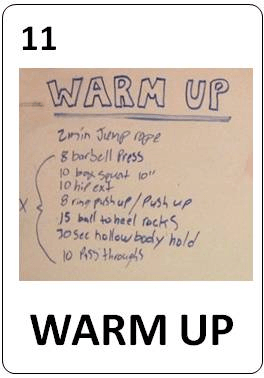 11
WARM UP
2min Jump rope
8 barbell Press
10 box squat 10"
10 hip ext
8 ring push up / Push up
X
15 ball to heel rocks
30sec hollow body hold
10 Pass throughs
WARM UP